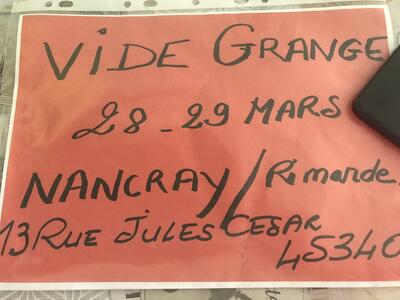 VIDE GRANGE
28_29 MARS
NANCRAY/Rimarde
13 RUE JULES CESAR
45340